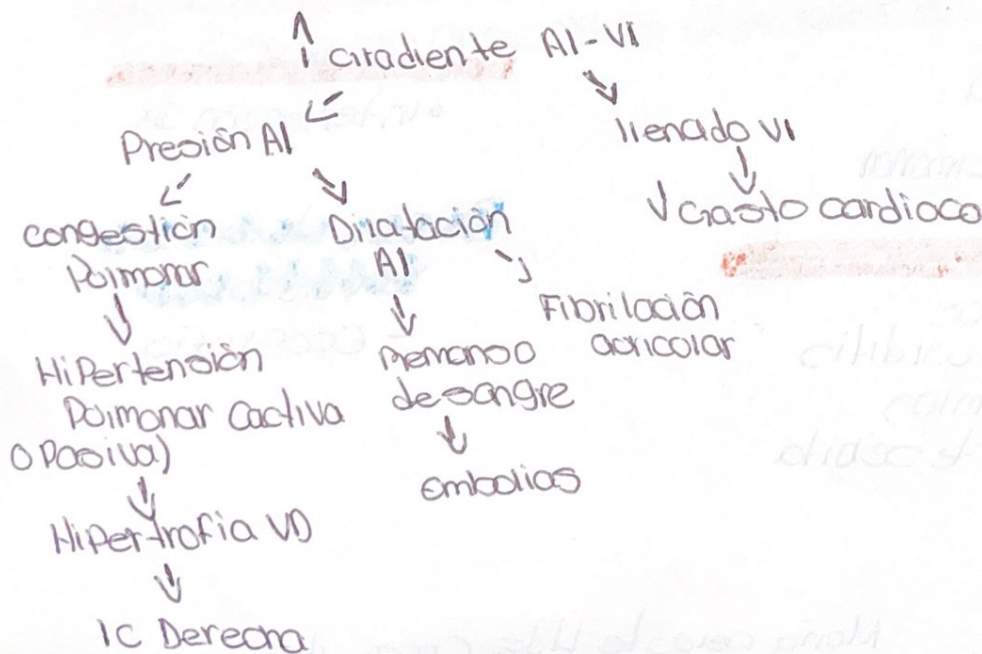 ↑ Gradiente AI-VI
Presión AI
llenado VI
congestión
Pulmonar
Dilatación
AI
↓ Gasto cardioco
Fibrilación
auricular
Hipertensión
Pulmonar (activa
o Pasiva)
remanso
de sangre
embolias
Hipertrofia VD
IC Derecha